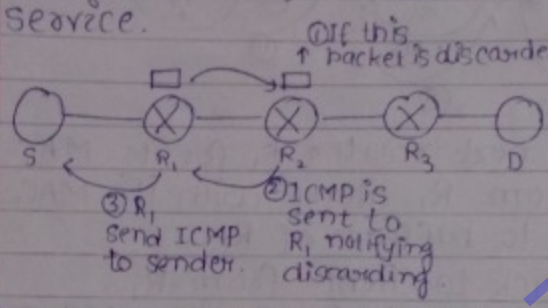 Service.
① If this
packet is discarde
S
R₁
R₂
R₃
D
③ R₁
send ICMP
to sender.
② ICMP is
sent to
R₁ notifying
discarding